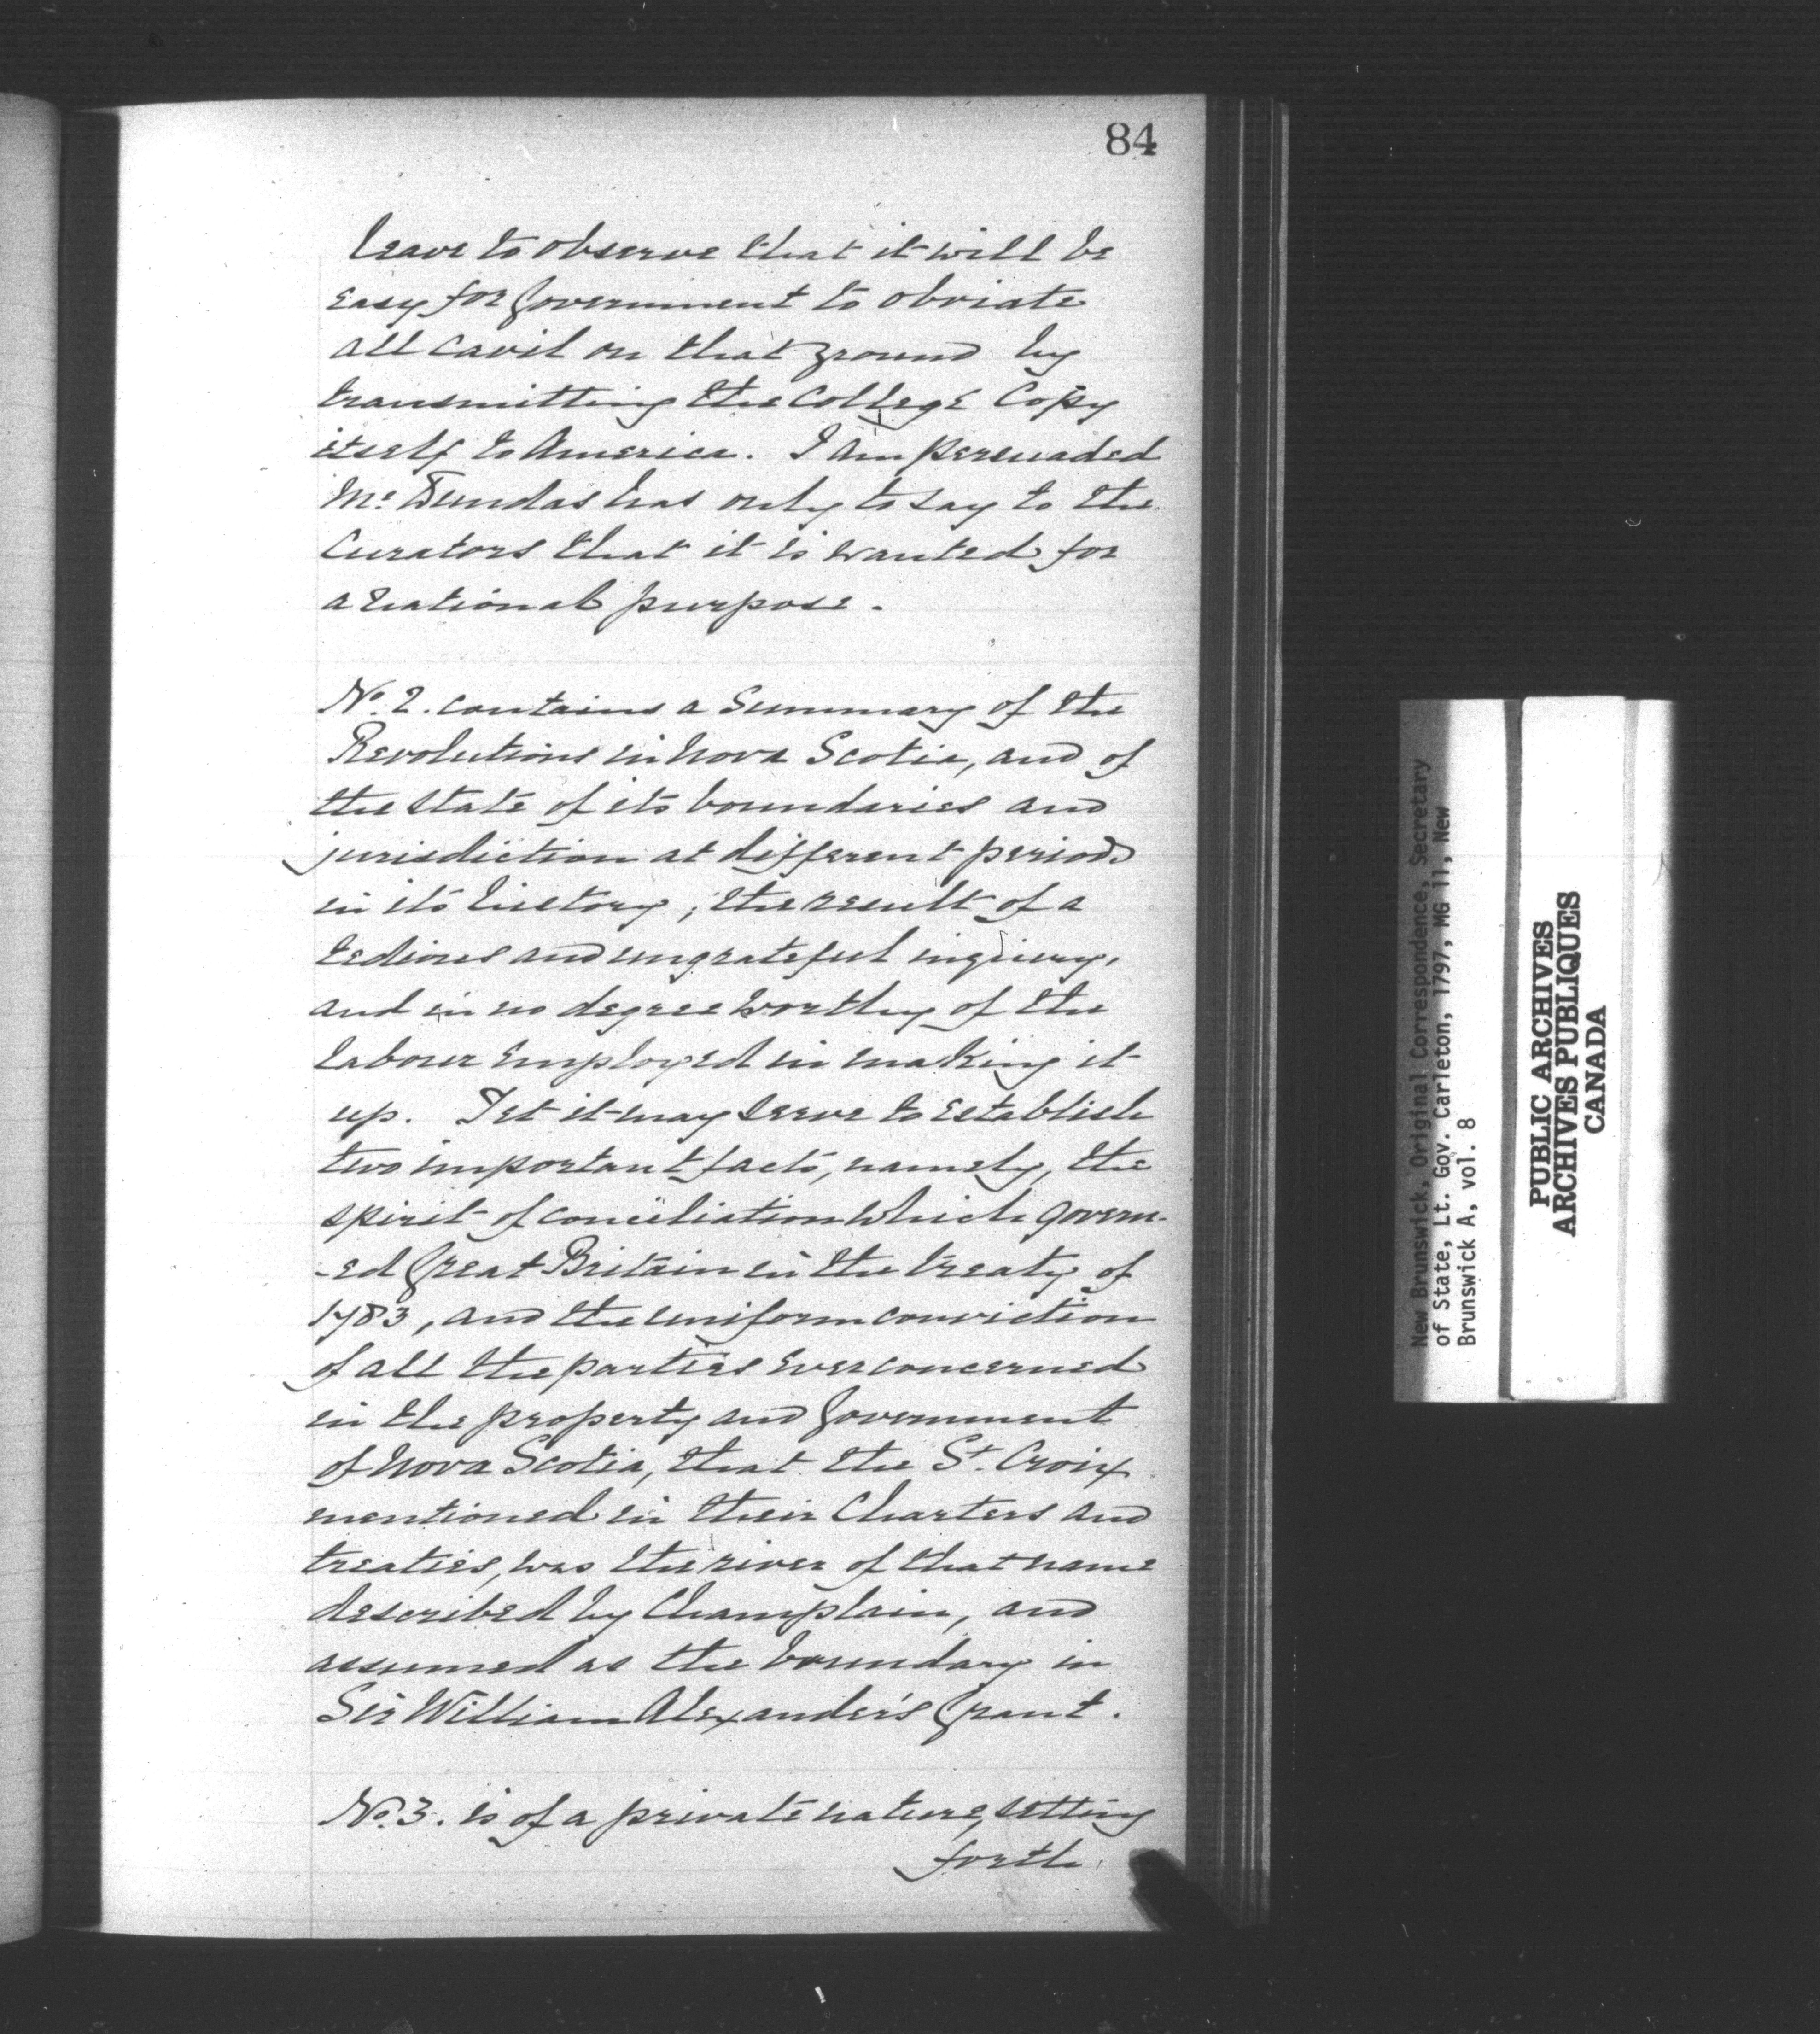 84
leave to observe that it will be
easy for Government to obviate
all cavil on that ground by
transmitting the College Copy
itself to America. I am persuaded
Mr. Dundas has only to say to the
Curators that it is wanted for
a national purpose.
No. 2. contains a Summary of the
Revolutions in Nova Scotia, and of
the state of its boundaries and
jurisdiction at different periods
in its history; the result of a
tedious and ungrateful inquiry,
and in no degree worthy of the
labour employed in making it
up. Yet it may serve to establish
two important facts, namely, the
spirit of conciliation which govern-
-ed Great Britain in the treaty of
1783, and the uniform conviction
of all the parties ever concerned
in the property and Government
of Nova Scotia, that the St. Croix
mentioned in their Charters and
treaties, was the river of that name
described by Champlain, and
assumed as the boundary in
Sir William Alexander's Grant.
No. 3. is of a private nature, setting
forth
New Brunswick, Original Correspondence, Secretary
of State, Lt. Gov. Carleton, 1797, MG 11, New
Brunswick A, vol. 8
PUBLIC ARCHIVES
ARCHIVES PUBLIQUES
CANADA